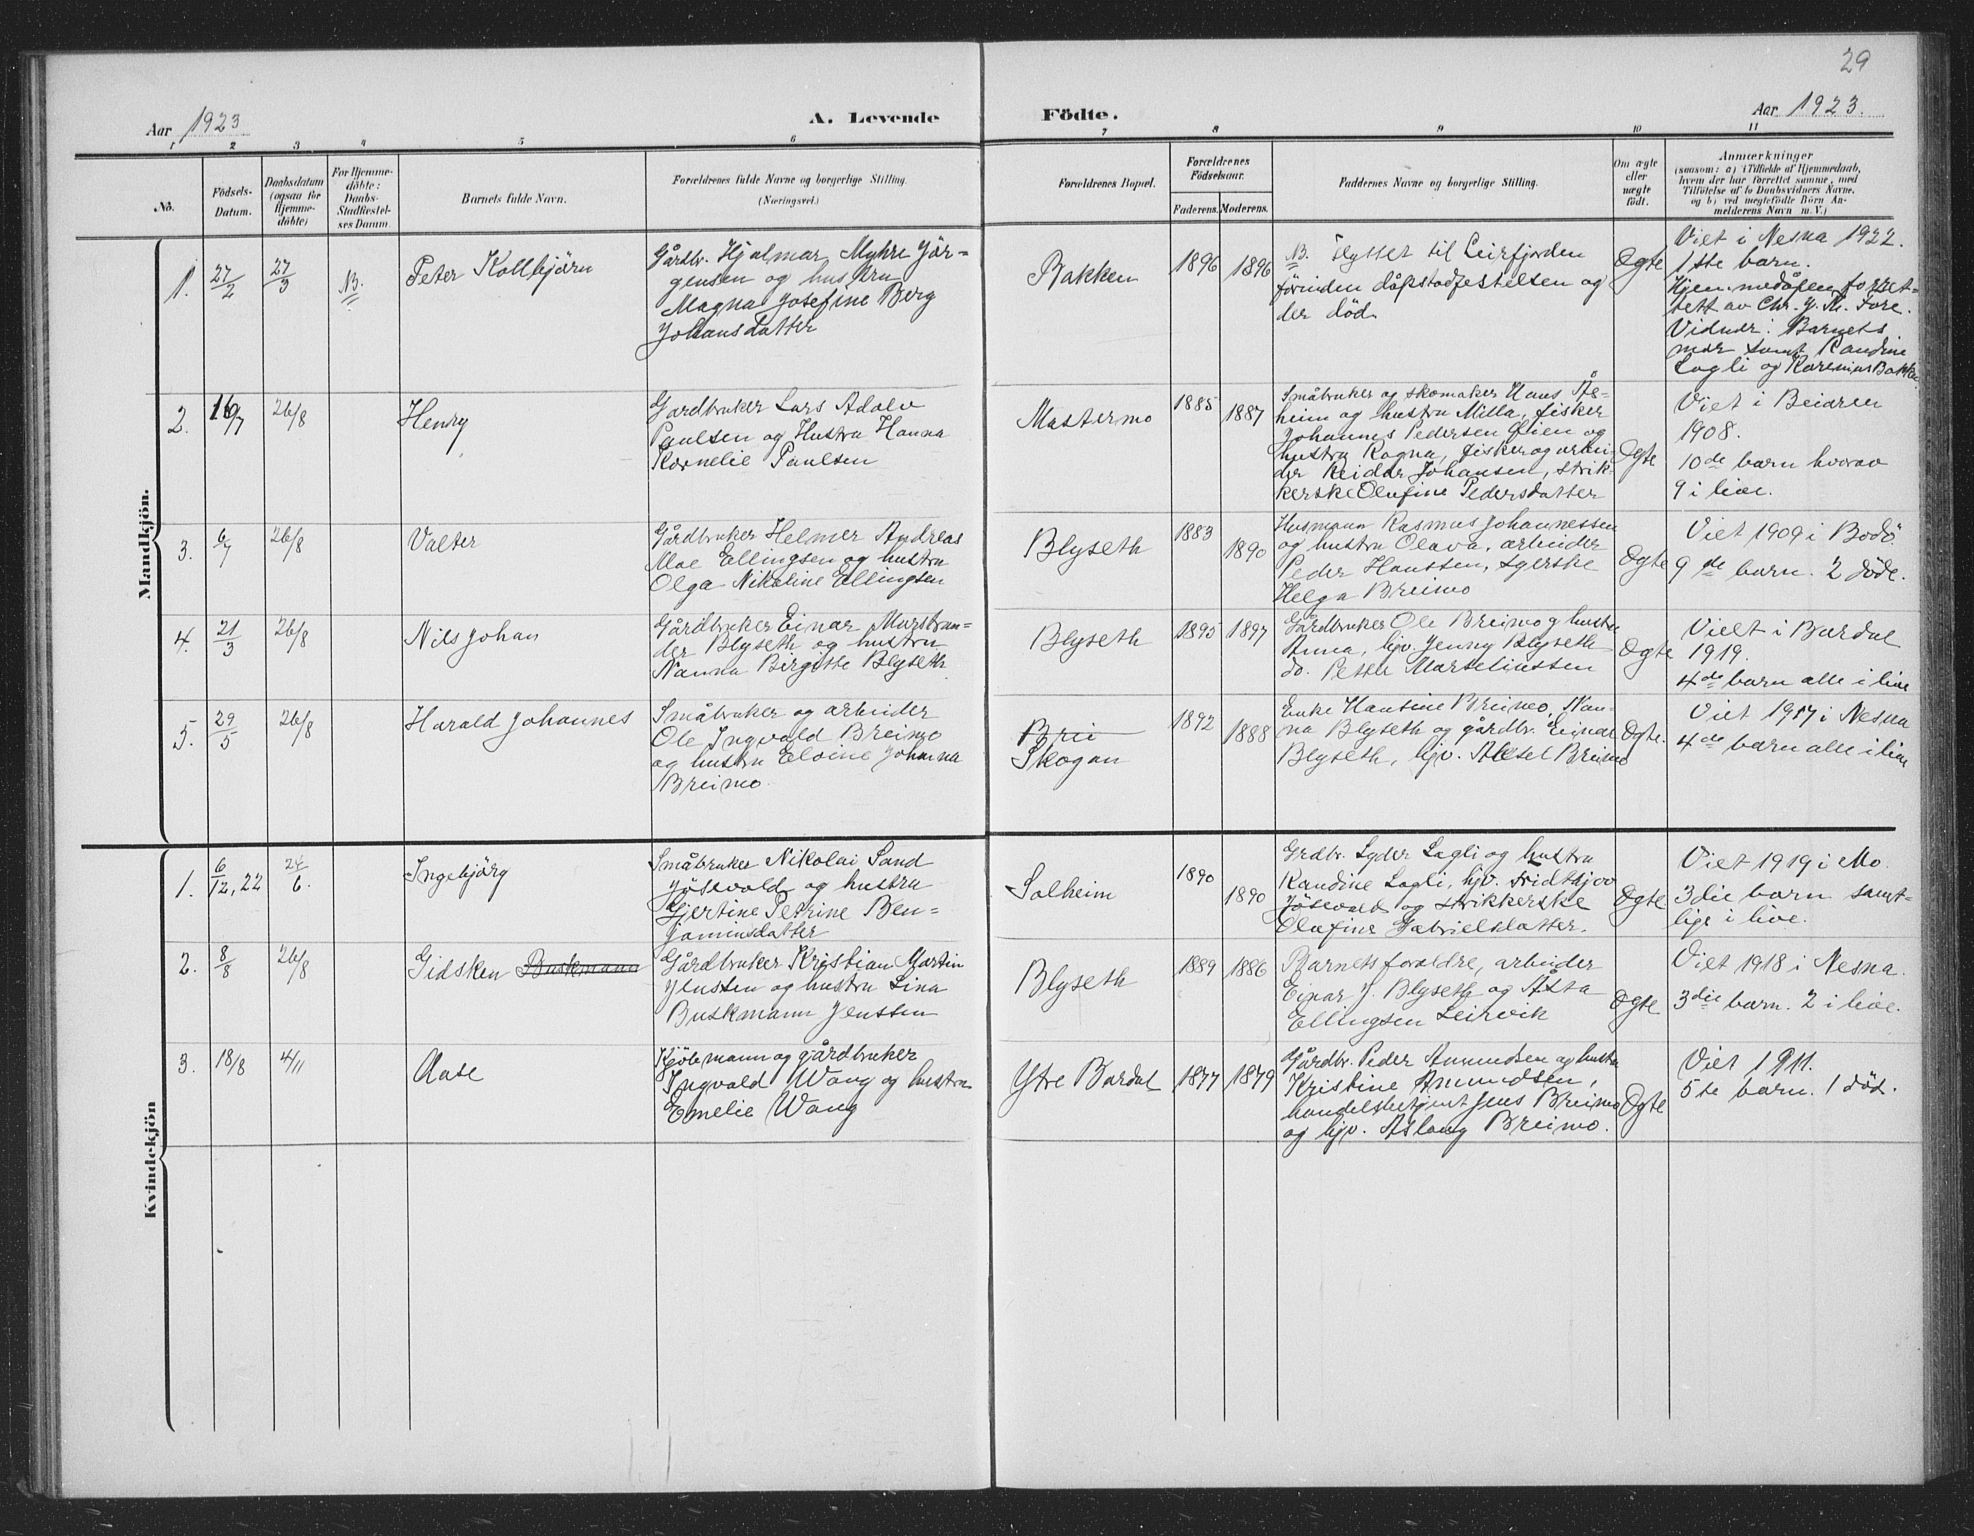 29
Aar 1923
A. Levende
Födte.
Aar 1923.
1 2 3 4 5 6 7 8 9 10 11
No.
Födsels-
Datum.
Daabsdatum
(ogsaa for
Hjemme-
döbte)
For Hjemme-
döbte:
Daabs-
Stadfæstel-
ses Datum.
Barnets fulde Navn.
Forældrenes fulde Navne og borgerlige Stilling.
(Næringsvei.)
Forældrenes Bopæl.
Forældrenes
Födselsaar.
Faderens. Moderens.
Faddernes Navne og borgerlige Stilling.
Om ægte
eller
uægte
födt.
Anmærkninger
(saasom: a) i Tilfælde af Hjemmedaab,
hvem der har forrettet samme, med
Tilföielse af to Daabsvidners Navne,
og b) ved uægtefödte Börn An-
melderens Navn m. V.)
Mandkjön.
1. 27/2 27/3 NB. Peter Kolbjörn
Gårdbr. Hjalmar Myhre Jör-
gensen og hustru
Magna Josefine Berg
Johansdatter
Bakken
1896 1896
NB. Flyttet til Leirfjorden
forinden dåpstadfestelsen og
der död.
Ogte
Viet i Nesna 1922.
1ste barn.
Hjemmedåpen forret-
tett av Chr. J. M. Fore.
Vidner: Barnets
mor samt Randine
Lagli og Karenius Bakken
2. 16/7 26/8 Henry
Gardbruker Lars Adolv
Paulsen og Hustru Hanna
Kornelie Paulsen
Mastermo
1885 1887
Småbruker og skomaker Hans Åse-
heim og hustru Milla, fisker
Johannes Pedersen Öien og
hustru Ragna, fisker og arbei-
der Reidar Johansen, strik-
kerske Olufine Pedersdatter
Ogte
Viet i Beiaren
1908.
10de barn hvorav
9 i live.
3. 6/7 26/8 Valter
Gårdbruker Helmer Andreas
Moe Ellingsen og hustru
Olga Nikoline Ellingsen
Blyseth
1883 1890
Husmann Rasmus Johannessen
og hustru Olava, arbeider
Peder Hanssen, syerske
Helga Breimo
Ogte
Viet 1909 i Bodö.
9de barn. 2 döde.
4. 21/3 26/8 Nils Johan
Gårdbruker Einar Murstran-
der Blyseth og hustru
Nanna Birgitte Blyseth
Blyseth
1895 1897
Gårdbruker Ole Breimo og hustru
Anna, hjv. Jenny Blyseth
do. Petra Marseliussen
Ogte
Viet i Bardal
1919.
4de barn alle i live
5. 29/5 26/8 Harald Johannes
Småbruker og arbeider
Ole Ingvald Breimo
og hustru Eloine Johanna
Breimo.
Brei
Skogan
1892 1888
Enke Hansine Breimo, Nan-
na Blyseth og gårdbr. Einar
Blyseth, hjv. Aksel Breimo
Ogte.
Viet 1917 i Nesna
4de barn alle i live
Kvindekjön
1. 6/12, 22 24/6. Ingebjörg
Småbruker Nikolai Sand
Jösevold og hustru
Hjertine Petrine Ben-
jaminsdatter
Solheim
1890 1890
Grdbr. Lyder Lagli og hustru
Randine Lagli, hjv. Fridthjov
Jösevold og strikkerske
Olufine Gabrielsdatter.
Ogte
Viet 1919 i Mo.
3die barn samt-
lige i live.
2. 8/8 26/8 Gidsken Buskmann
Gårdbruker Kristian Martin
Jenssen og hustru Lina
Buskmann Jenssen
Blyseth
1889 1886
Barnets foreldre, arbeider
Einar J. Blyseth og Åsta
Ellingsen Leirvik
Ogte
Viet 1918 i Nesna.
3die barn. 2 i live.
3. 18/8 4/11 Aase
Kjöbmann og gårdbruker
Ingvald Wang og hustru
Emelie Wang
Ytre Bardal
1877 1879
Gårdbr. Peder Amundsen og hustru
Kristine Amundsen,
handelsbetjent Jens Breimo
og hjv. Aslaug Breimo.
Ogte
Viet 1911.
5te barn. 1 död.